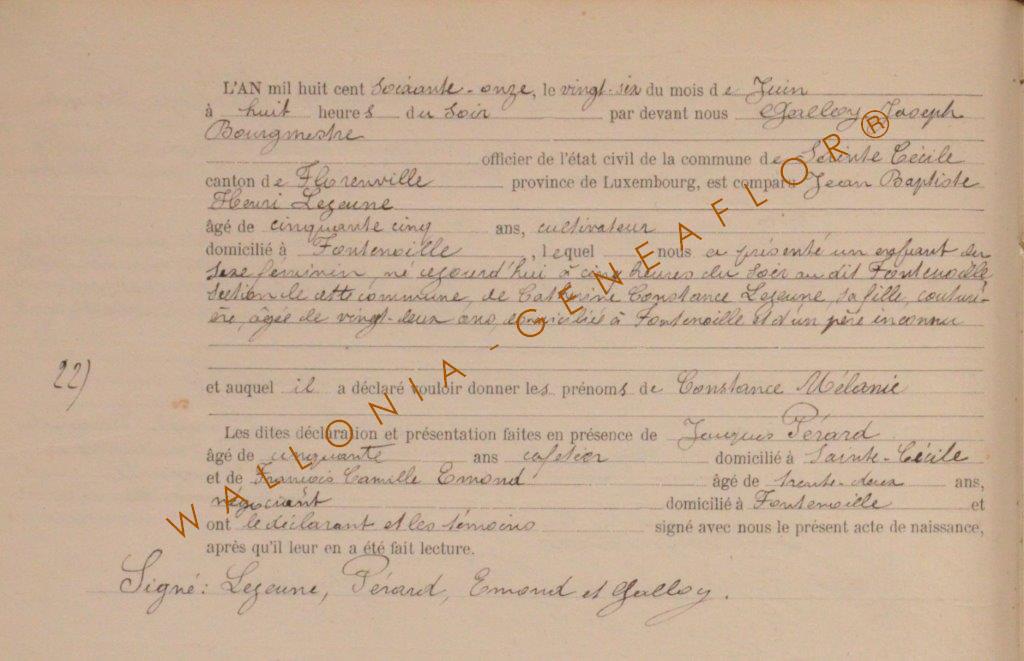 L'AN mil huit cent soixante-onze, le vingt-six du mois de Juin
à huit heures du soir par devant nous Galloy Joseph
Bourgmestre
officier de l'état civil de la commune de Sainte Cécile
canton de Florenville province de Luxembourg, est comparu Jean Baptiste
Henri Lejeune
âgé de cinquante cinq ans, cultivateur
domicilié à Fontenoille, lequel nous a présenté un enfant du
sexe féminin, né cejourd'hui à cinq heures du soir au dit Fontenoille,
section de cette commune, de Catherine Constance Lejeune, sa fille, couturi-
ère, âgée de vingt-deux ans, domiciliée à Fontenoille et d'un père inconnu
22)
et auquel il a déclaré vouloir donner les prénoms de Constance Mélanie
Les dites déclaration et présentation faites en présence de Jacques Pérard
âgé de cinquante ans cafetier domicilié à Sainte-Cécile
et de François Camille Emond âgé de trente-deux ans,
négociant domicilié à Fontenoille et
ont le déclarant et les témoins signé avec nous le présent acte de naissance,
après qu'il leur en a été fait lecture.
Signé: Lejeune, Pérard, Emond et Galloy.
WALLONIA-GENEAFLOR®